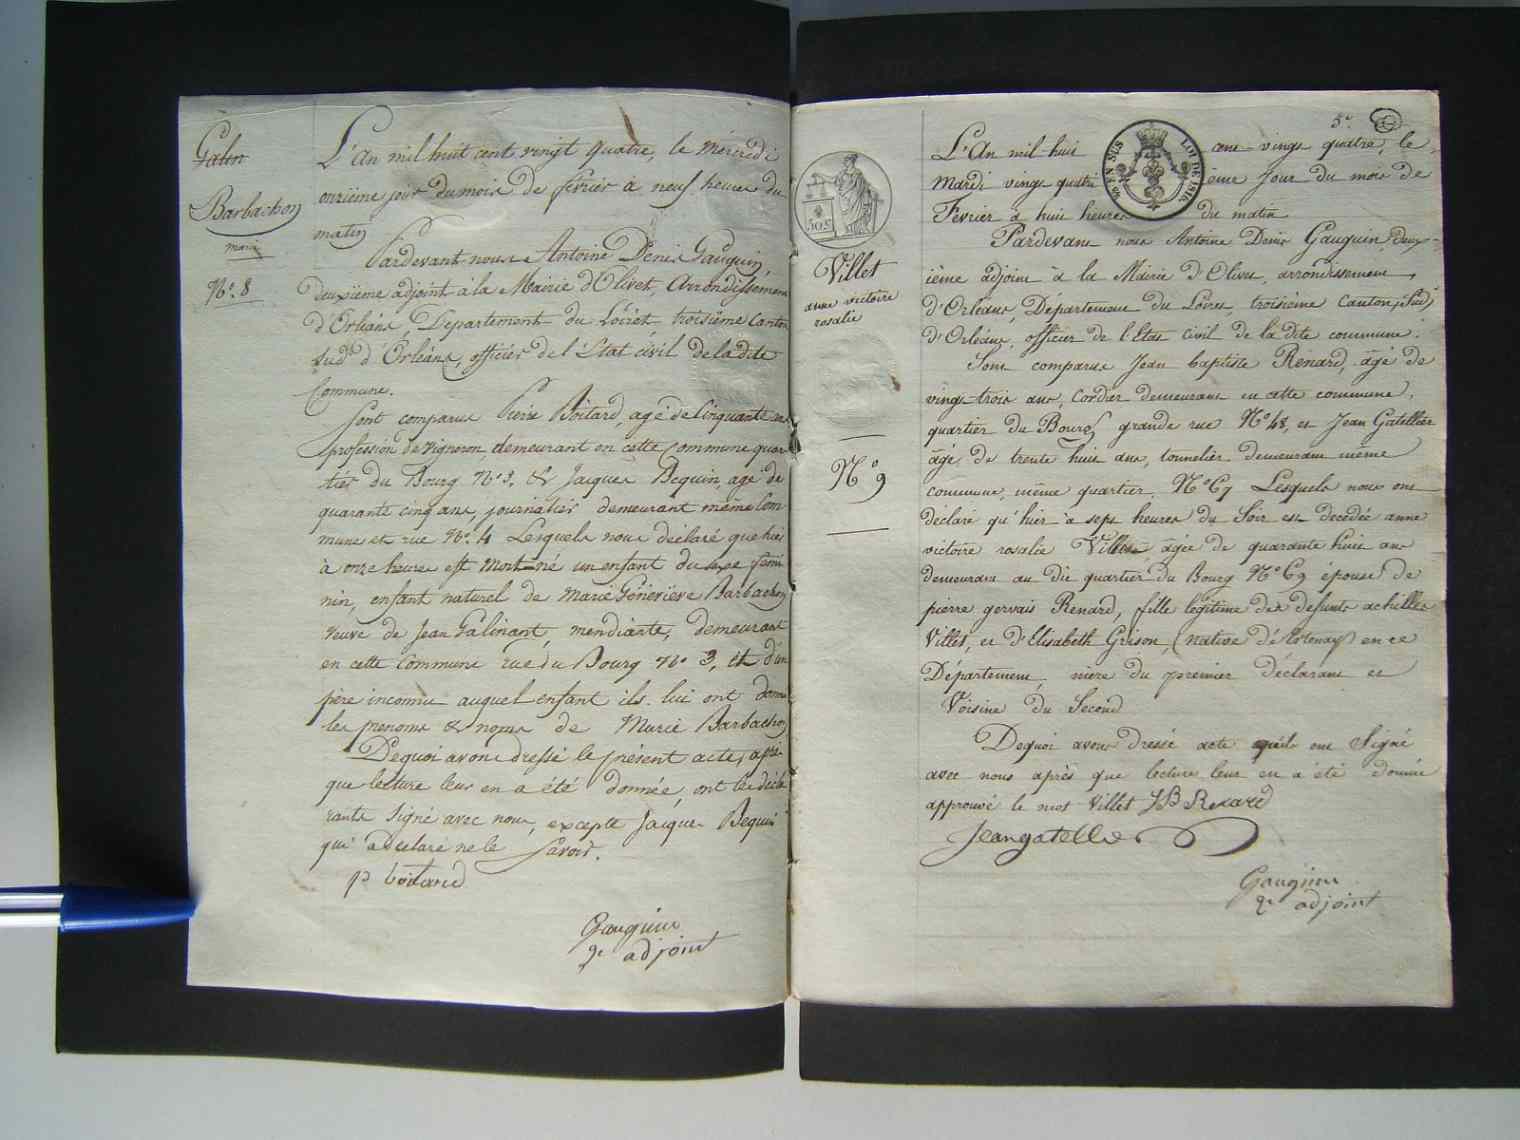 Galin
Barbachon
marie
N.° 8
L'An mil huit cent vingt quatre, le mércredi
onzième jour du mois de février à neuf heures du
matin
Pardevant nous Antoine Denis Gauguin,
deuxième adjoint a la Mairie d'Olivet, Arrondissement
d'Orléans, Département du Loiret troisième Canton
sud d'Orléans, officier de l'État civil de la dite
Commune.
Sont comparus Pierre Boitard, agé de Cinquante
profession de vigneron, demeurant en cette Commune quar
tier du Bourg N.° 3. & Jacques Bequin, agé de
quarante cinq ans, journalier demeurant même Com
mune et rue N.° 4 Lesquels nous déclaré que hier
à onze heures est mort-né un enfant du sexe fémi
nin, enfant naturel de Marie Géneviève Barbachon
veuve de Jean Galinant, mendiante, demeurant
en cette Commune rue du Bourg N.° 3, et d'un
père inconnu auquel enfant ils lui ont donné
les prenoms & noms de Marie Barbachon
De quoi avons dressé le présent acte, après
que lecture leur en a été donnée, ont les décla
rants signé avec nous, excepté Jacques Bequin
qui a déclaré ne le savoir.
p boitard
Gauguin
2e adjoint
5e.
EN SUS
LOI DE 1816
50 c
Villet
anne victoire
rosalie
N.° 9
L'An mil huit cent vingt quatre, le
Mardi vingt quatrième jour du mois de
Fevrier à huit heures du matin
Pardevant nous Antoine Denis Gauguin, deux-
ième adjoint à la Mairie d'Olivet, arrondissement
d'Orléans, Département du Loiret, troisième Canton (Sud)
d'Orléans, officier de l'Etat civil de la dite commune.
Sont comparus Jean baptiste Rénard, âgé de
vingt-trois ans, Cordier demeurant en cette commune,
quartier du Bourg, grande rue N.° 48, et Jean Gatellier
âgé de trente huit ans, tonnelier demeurant même
commune, même quartier, N.° 67 Lesquels nous ont
déclaré qu'hier à sept heures du Soir est decedée anne
victoire rosalie Villet âgée de quarante huit ans
demeurant au dit quartier du Bourg N.° 69 épouse de
pierre gervais Renard, fille légitime des defunts achilles
Villet, et d'Elisabeth Grison, (native d'Artenay) en ce
Département, mère du premier déclarant et
Voisine du Second
Dequoi avons dressé acte qu'ils ont Signé
avec nous après que lecture leur en a été donnée
approuvé le mot Villet JB Renard
Jean gatellie
Gauguin
2e adjoint